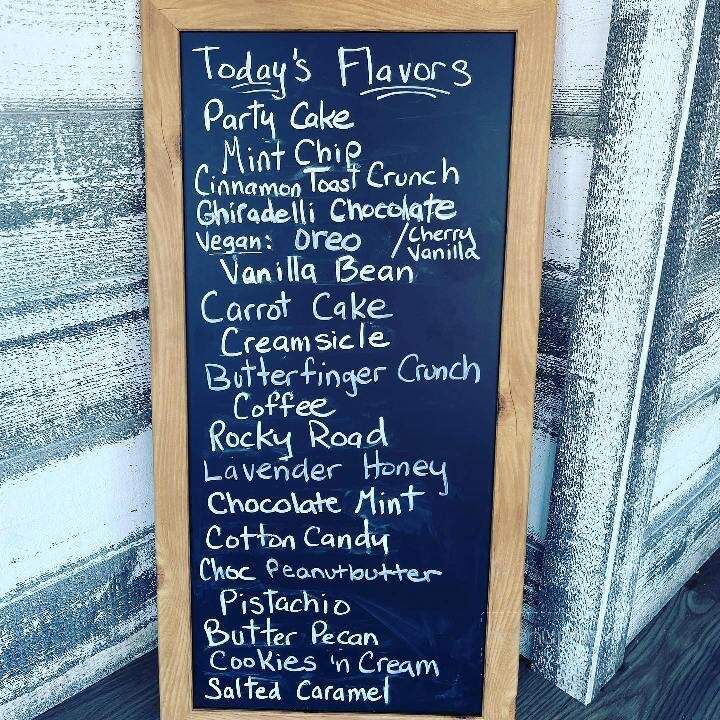 Today's Flavors
Party Cake
Mint Chip
Cinnamon Toast Crunch
Ghiradelli Chocolate
Vegan: Oreo / Cherry Vanilla
Vanilla Bean
Carrot Cake
Creamsicle
Butterfinger Crunch
Coffee
Rocky Road
Lavender Honey
Chocolate Mint
Cotton Candy
Choc Peanutbutter
Pistachio
Butter Pecan
Cookies 'n Cream
Salted Caramel